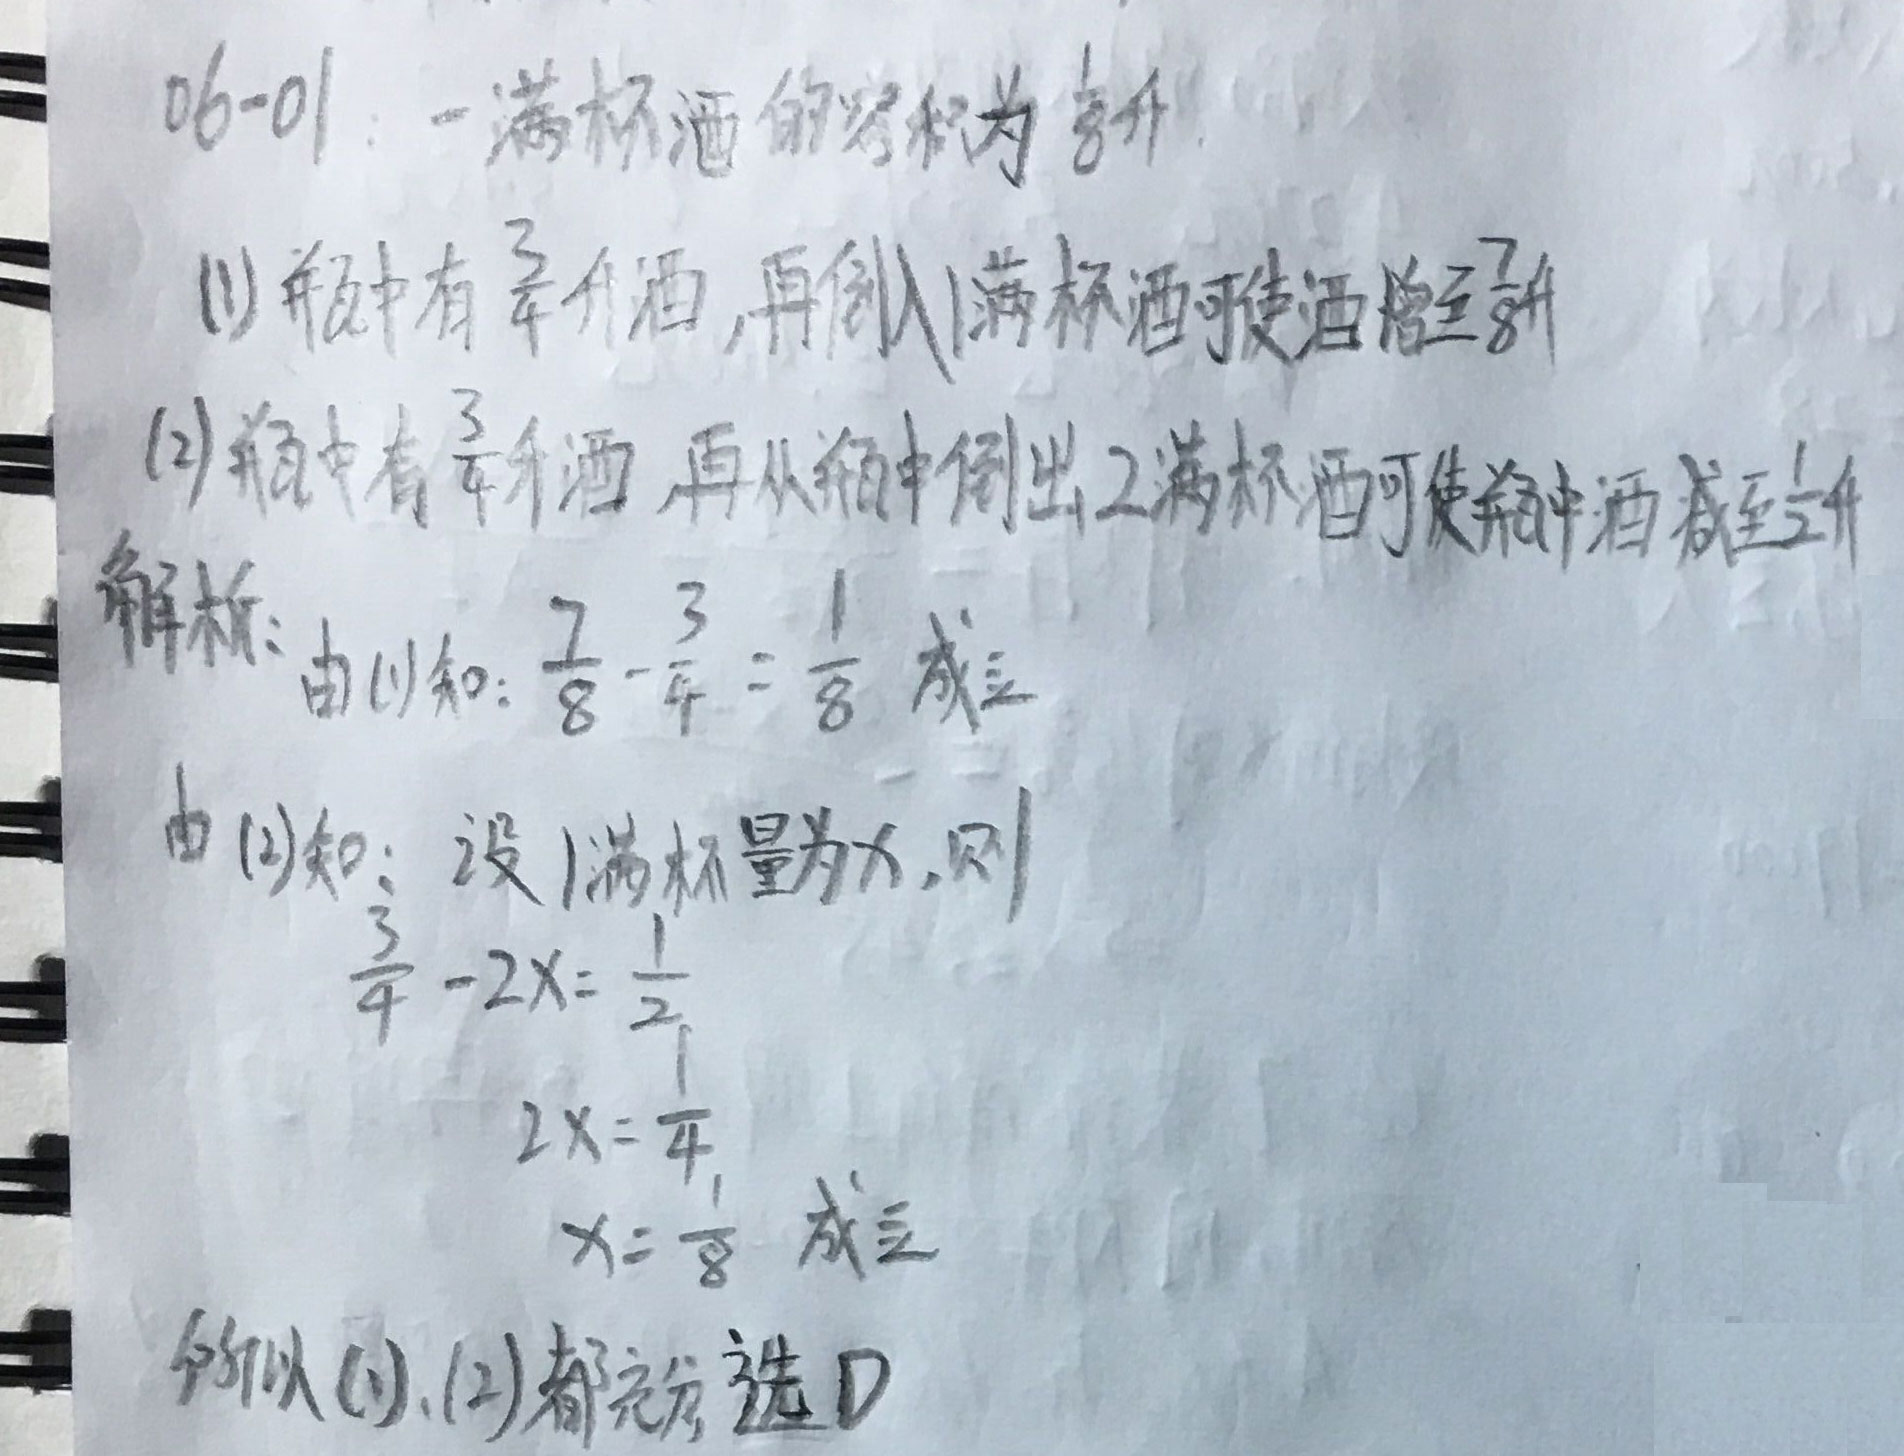 06-01：一满杯酒的容积为1/8升.
(1) 瓶中有3/4升酒,再倒入1满杯酒可使酒增至7/8升
(2) 瓶中有3/4升酒,再从瓶中倒出2满杯酒可使瓶中酒减至1/2升
解析:
由(1)知: 7/8 - 3/4 = 1/8 成立
由(2)知: 设1满杯量为x,则
3/4 - 2x = 1/2
2x = 1/4
x = 1/8 成立
所以(1)、(2)都充分 选D